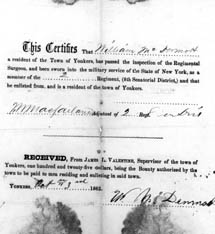 This Certifies That William McDermott
a resident of the Town of Yonkers, has passed the inspection of the Regimental
Surgeon, and been sworn into the military service of the State of New York, as a
member of the 2 Regiment, (8th Senatorial District,) and that
he enlisted from, and is a resident of the town of Yonkers.
of 2
RECEIVED, From JAMES L. VALENTINE, Supervisor of the town of
Yonkers, one hundred and twenty-five dollars, being the Bounty authorized by the
town to be paid to men residing and enlisting in said town.
YONKERS, 1862
W McDermott